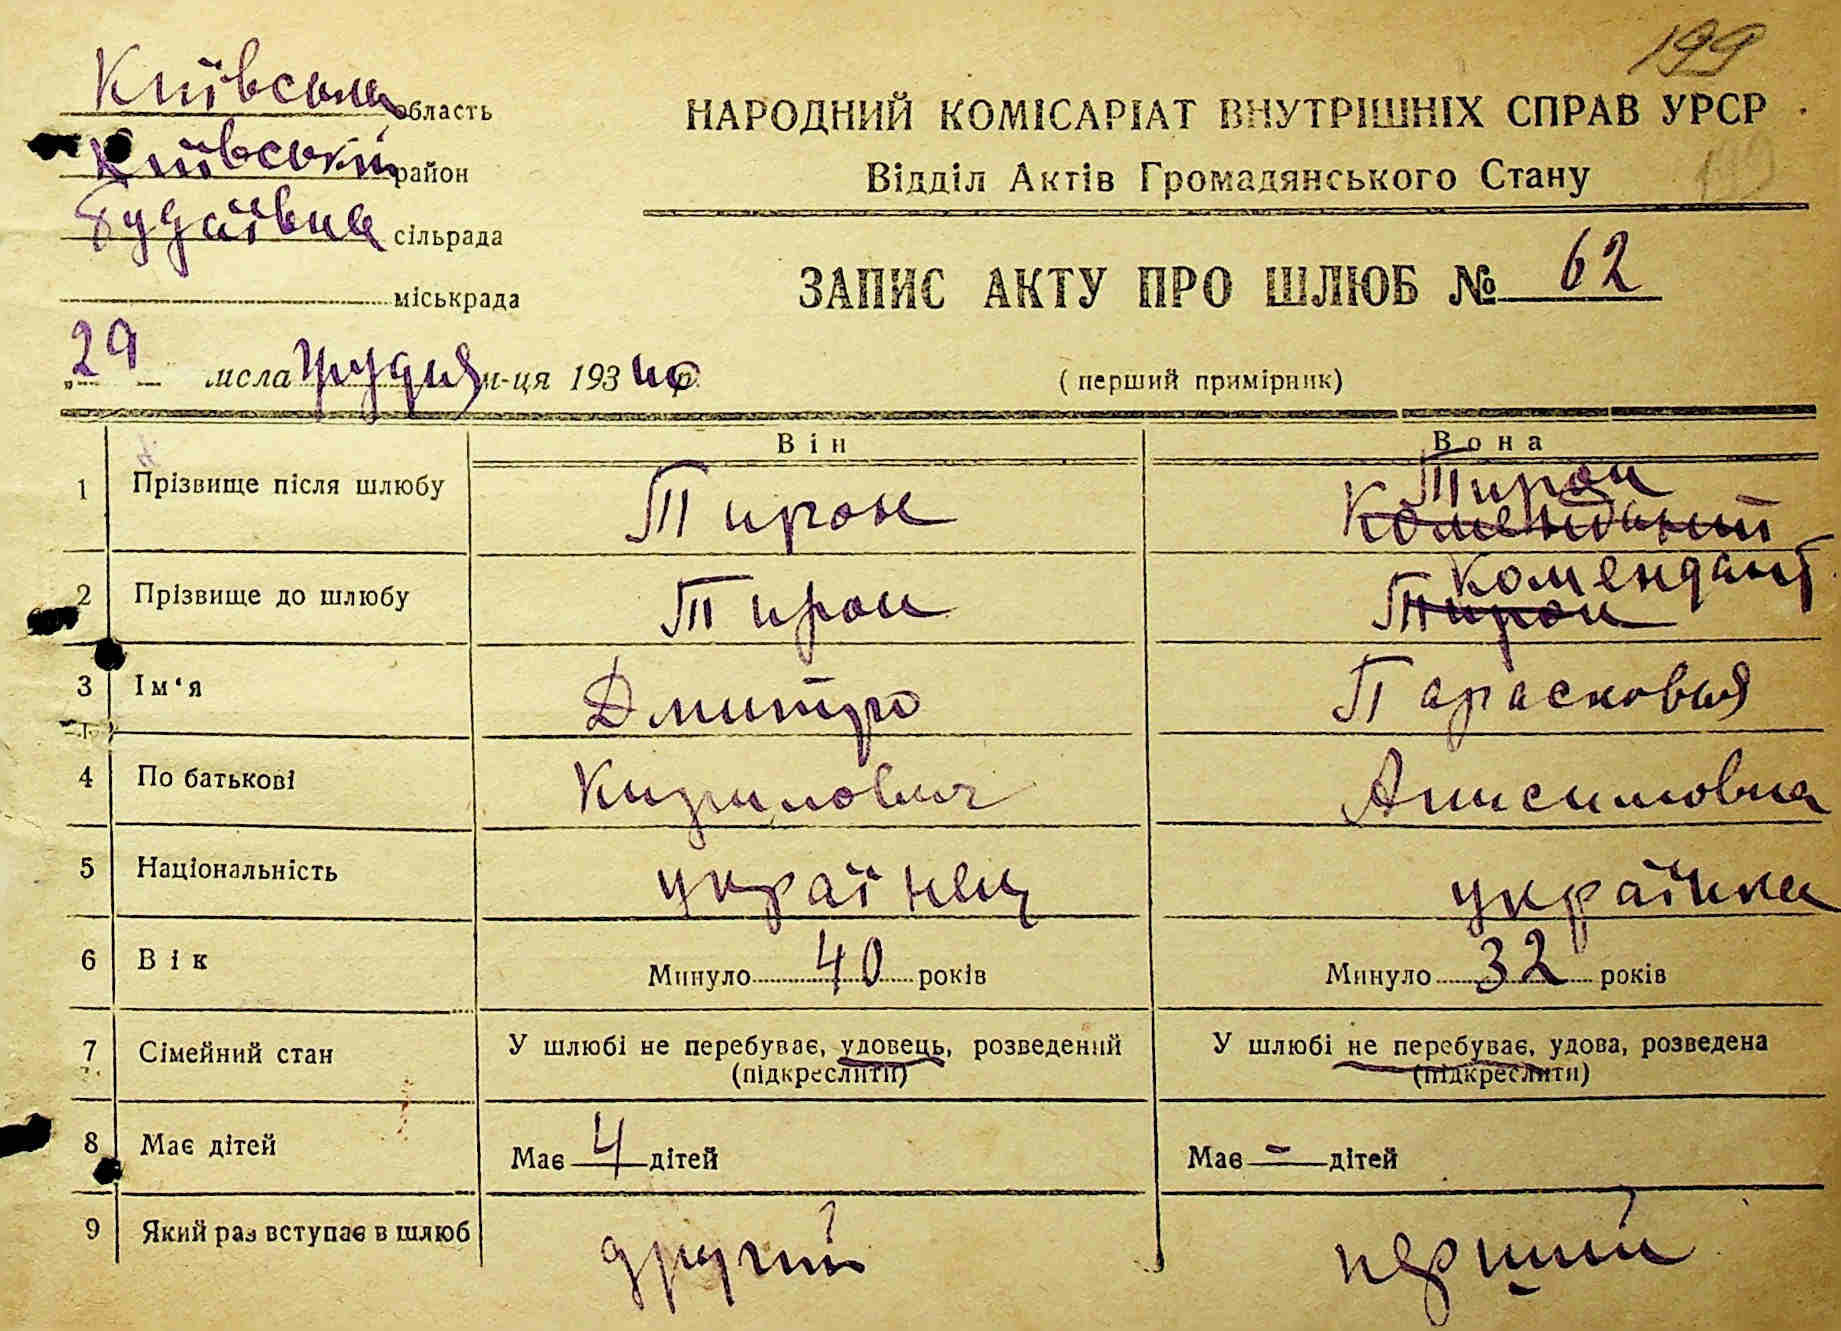 199
Київська область
Київський район
Будаївка сільрада
міськрада
29 числа грудня м-ця 1934 р.
НАРОДНИЙ КОМІСАРІАТ ВНУТРІШНІХ СПРАВ УРСР
Відділ Актів Громадянського Стану
ЗАПИС АКТУ ПРО ШЛЮБ № 62
(перший примірник)
Він Вона
1 Прізвище після шлюбу Тирон Тирон
2 Прізвище до шлюбу Тирон Комендант Тирон
3 Ім'я Дмитро Парасковья
4 По батькові Кирилович Анисимовна
5 Національність українец українка
6 Вік Минуло 40 років Минуло 32 років
7 Сімейний стан У шлюбі не перебуває, удовець, розведений (підкреслити) У шлюбі не перебуває, удова, розведена (підкреслити)
8 Має дітей Має 4 дітей Має - дітей
9 Який раз вступає в шлюб другий перший